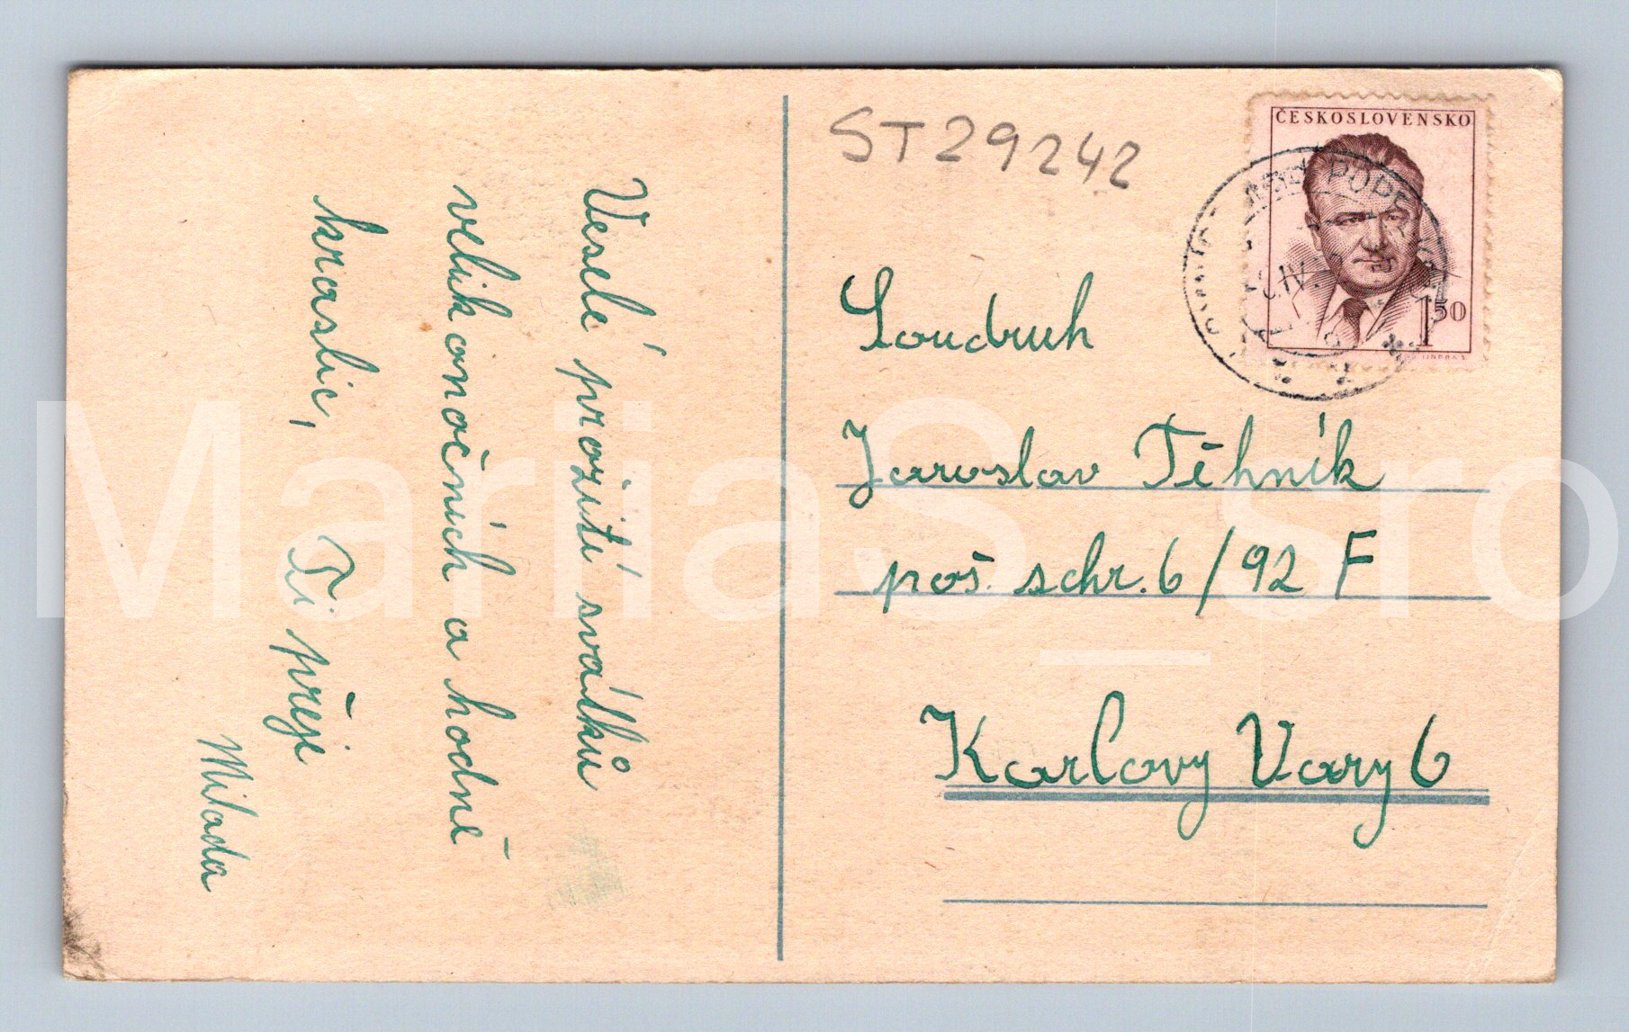 Veselé prožití svátků
velikonočních a hodně
kraslic,
Ti přeje
Milada
ST29242
ČESKOSLOVENSKO
1 50
Soudruh
Jaroslav Těhník
poš. schr. 6/92 F
Karlovy Vary 6
MariiaS_sro